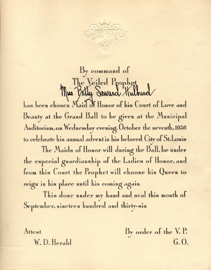 By command of
The Veiled Prophet
Miss Betty Seward Hulburd
has been chosen Maid of Honor of his Court of Love and
Beauty at the Grand Ball to be given at the Municipal
Auditorium, on Wednesday evening, October the seventh, 1936
to celebrate his annual advent in his beloved City of St. Louis
The Maids of Honor will during the Ball, be under the
especial guardianship of the Ladies of Honor, and
from this Court the Prophet will choose his Queen to
reign in his place until his coming again
This done under my hand and seal this month of
September, nineteen hundred and thirty-six
Attest By order of the V. P.
W. D. Herald G. O.